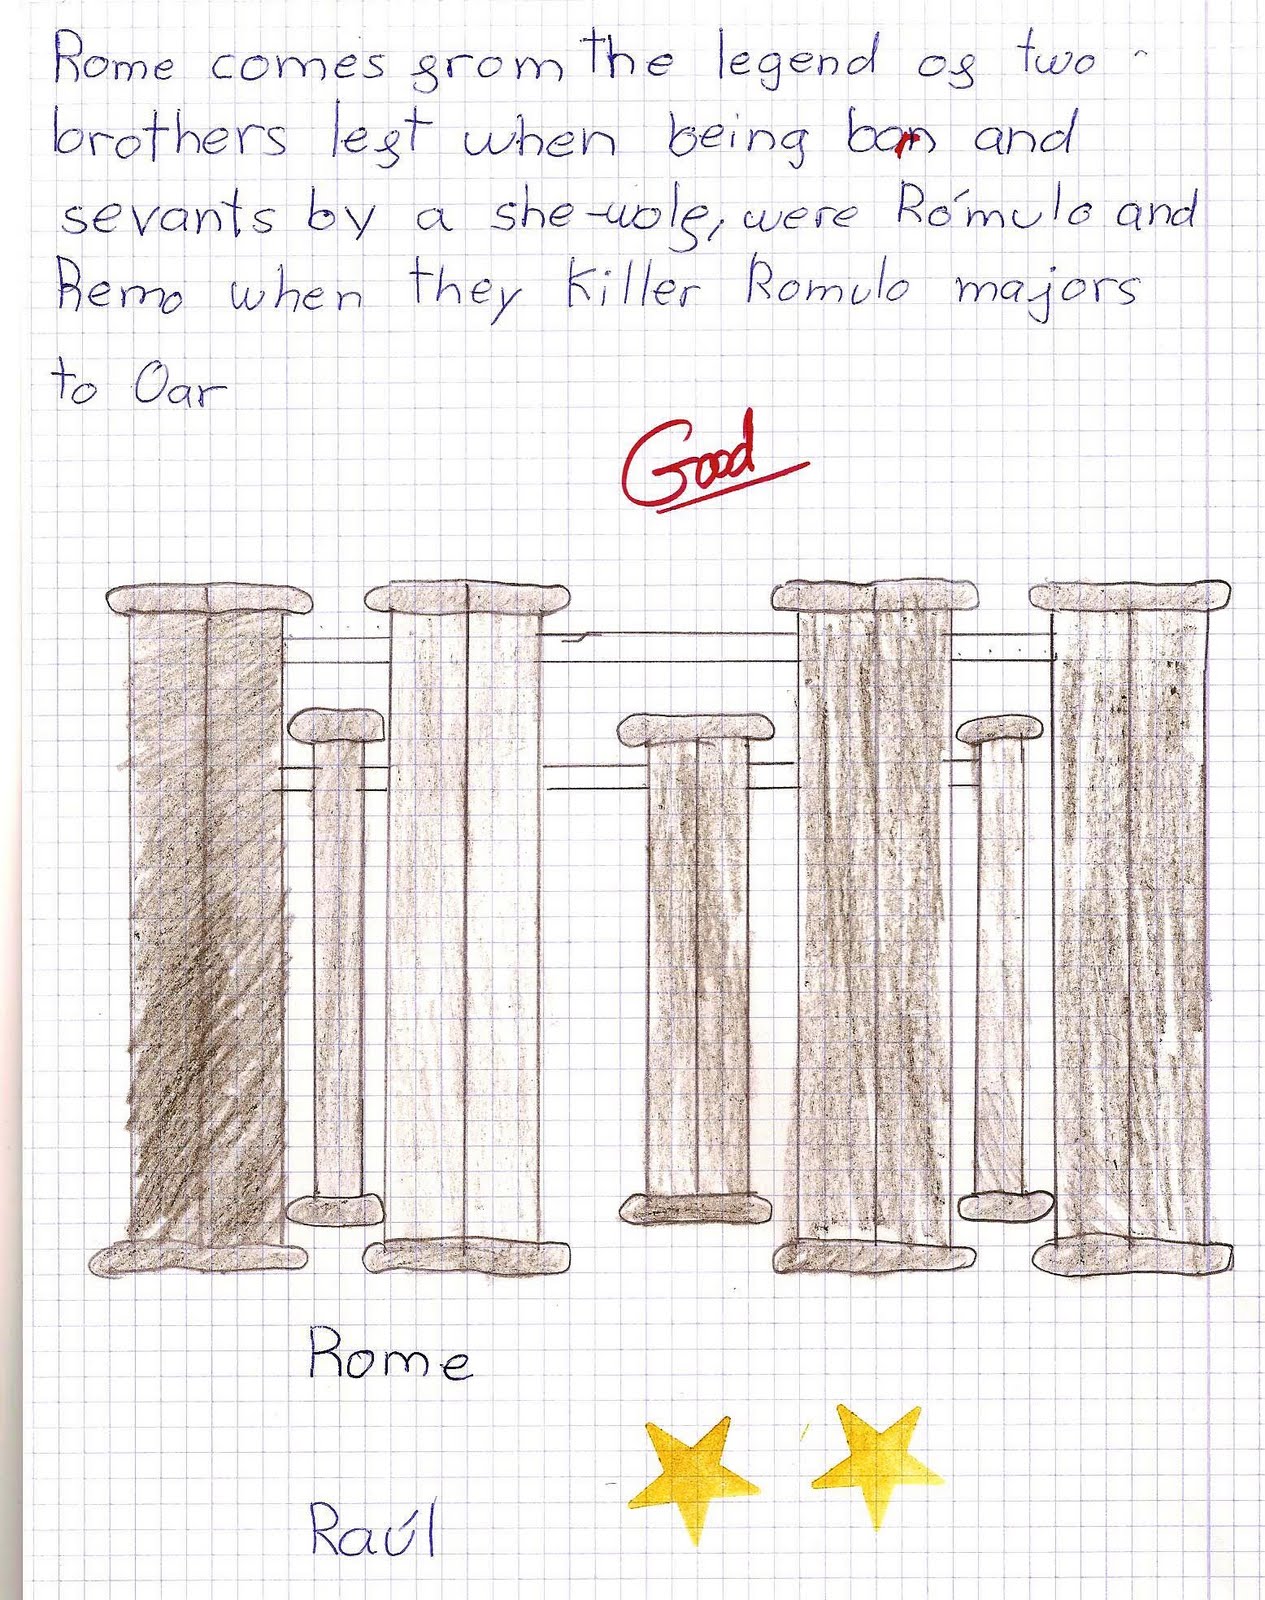 Rome comes from the legend of two
brothers left when being born and
sevants by a she-wolf, were Rómulo and
Remo when they killer Romulo majors
to Oar
Good
Rome
Raúl